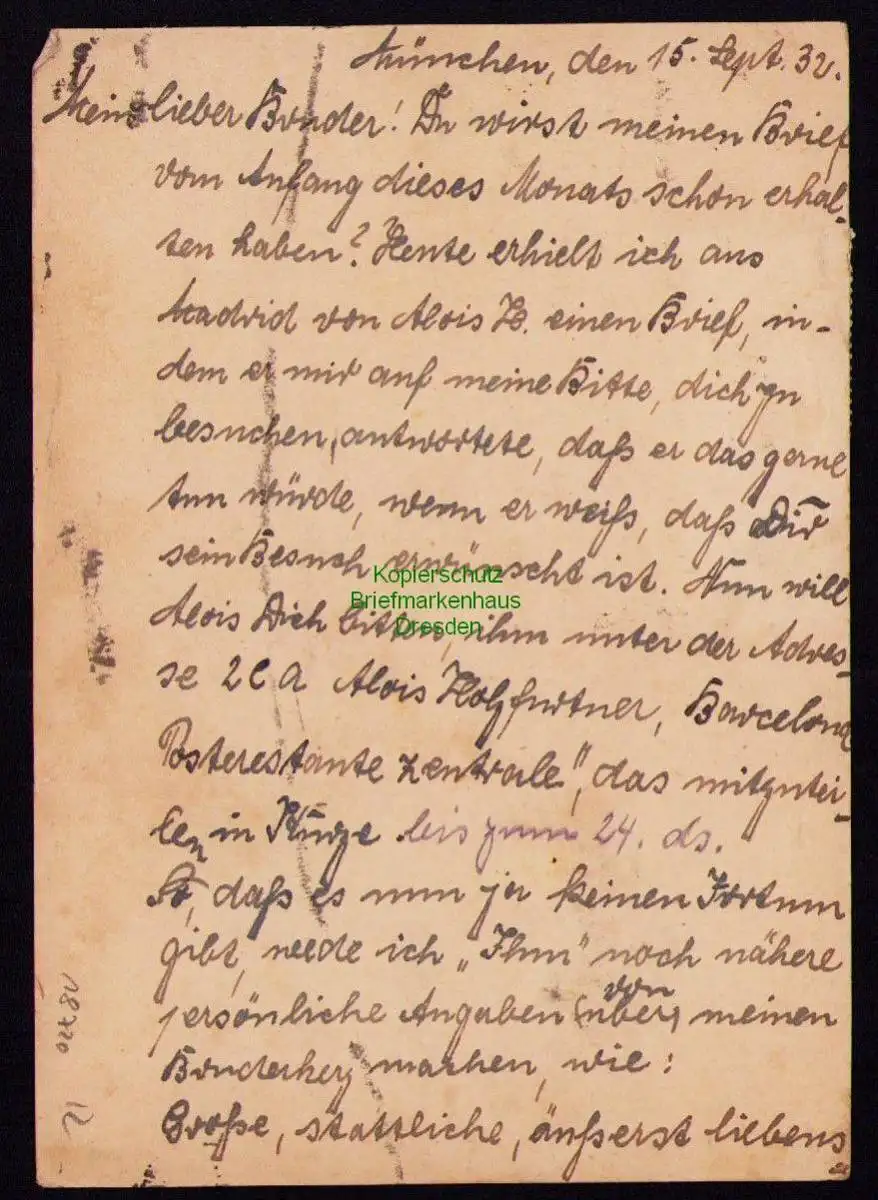 München, den 15. Sept. 32.
Mein lieber Bruder! Du wirst meinen Brief
vom Anfang dieses Monats schon erhal-
ten haben? Heute erhielt ich aus
Madrid von Alois H. einen Brief, in-
dem er mir auf meine Bitte, dich zu
besuchen, antwortete, daß er das gerne
tun würde, wenn er weiß, daß Dir
sein Besuch erwünscht ist. Nun will
Kopierschutz
Briefmarkenhaus
Dresden
Alois Dich bitten, ihm unter der Adres-
se 2 C A Alois Holzfurtner, Barcelona
Posterestante Zentrale", das mitzutei-
len in Kürze bis zum 24. ds.
So, daß es nun ja keinen Irrtum
gibt, wede ich „Ihm" noch nähere
von
persönliche Angaben (über) meinen
Bruderherz machen, wie:
Große, stattliche, äußerst liebens